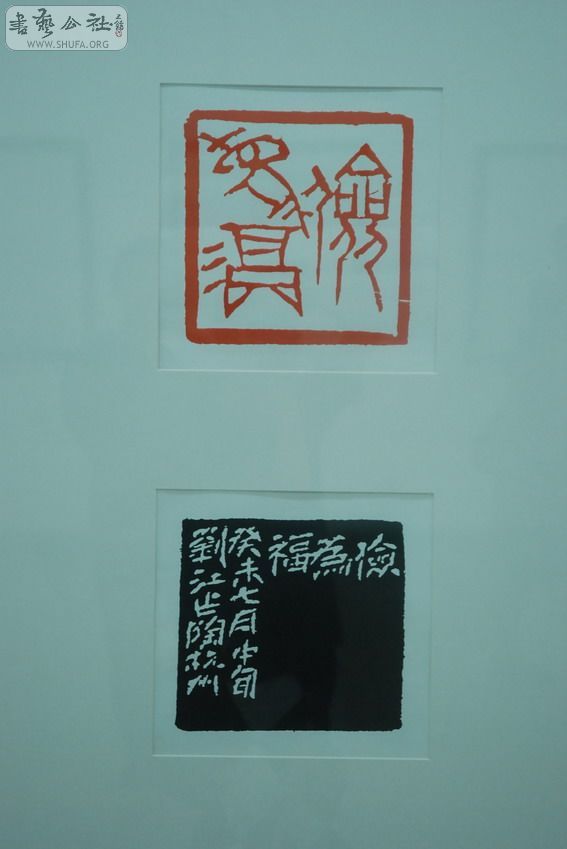 書藝公社
WWW.SHUFA.ORG
儉
儉為福
癸未七月中旬
劉江陶杭州